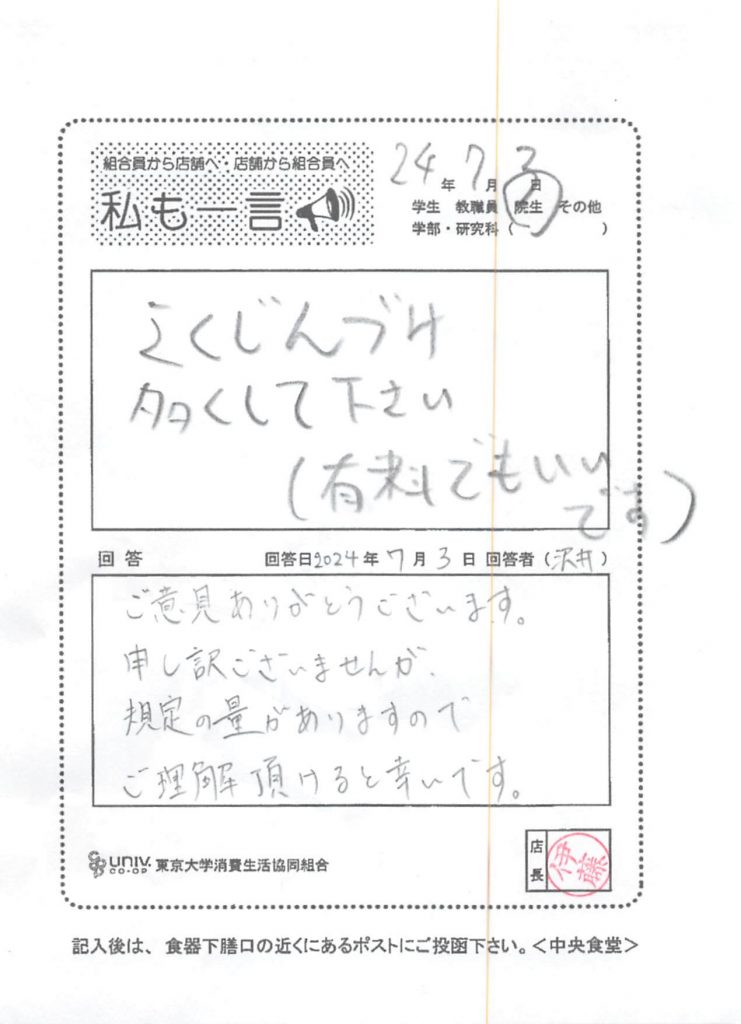 組合員から店舗へ・店舗から組合員へ
私も一言
24年7月3日
学生 教職員 院生 その他
学部・研究科( )
ふくじんづけ
多くして下さい
(有料でもいい
です)
回答 回答日2024年7月3日 回答者(沢井)
ご意見ありがとうございます。
申し訳ございませんが、
規定の量がありますので
ご理解頂けると幸いです。
UNIV. CO-OP 東京大学消費生活協同組合
店長 伊藤
記入後は、食器下膳口の近くにあるポストにご投函下さい。<中央食堂>